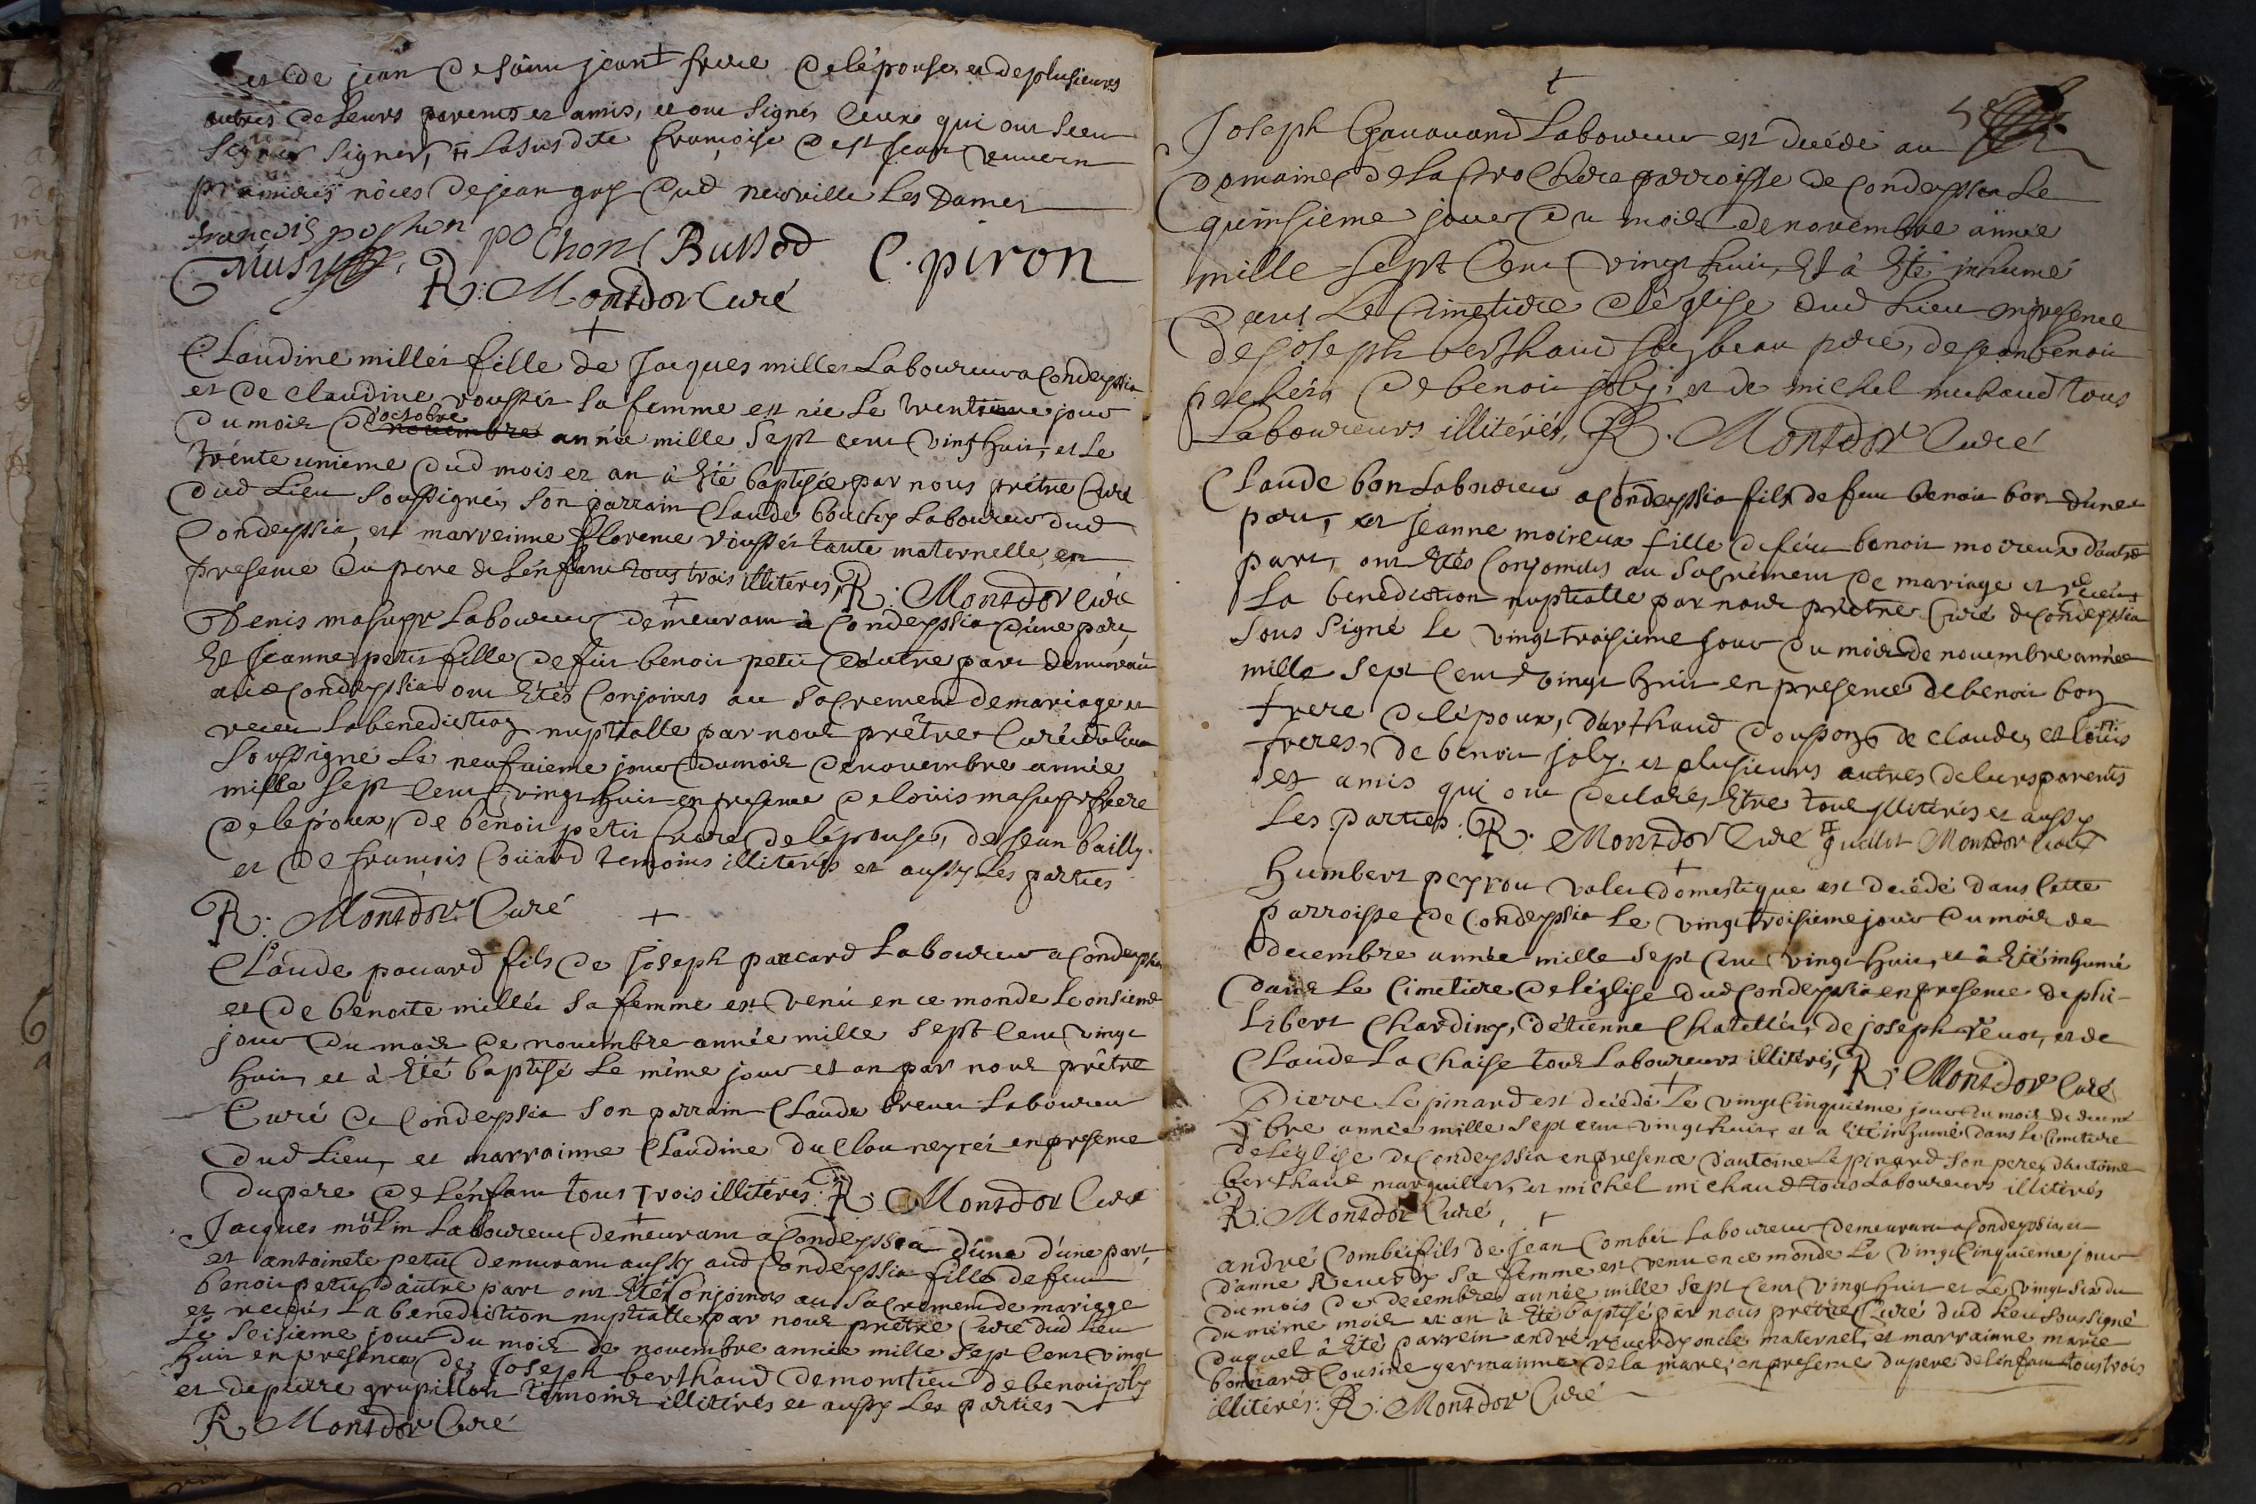 et de jean de saint jean + frere de lépouse, et de plusieurs
autres de leurs parents et amis, et ont signés ceux qui ont sceu
signer, # lasusdite françoise de st jean veuve en
premieres nôces de jean guy dud neuville les Dames
françois pochon pochon Bussod C. piron
Musy
R: Montdor Curé
+
Claudine millet fille de Jacques millet Laboureur a condeyssia
et de claudine roussét sa femme est née le trentieme jour
du mois d'octobre année mille sept cent vingt huit, et le
trénte unieme dud mois et an à été baptisée par nous prêtre Curé
dud Lieu soussigné, son parrain Claude bouchy Laboureur dud
Condeyssia, et marreinne florence roussét tante maternelle, en
presence du pere de lénfant tous trois illitérés, R: Montdor Curé
+
Denis masuyr Laboureur demeurant à Condeyssia d'une part,
Et Jeanne petit fille de fût benoit petit d'autre part demeurant
aud condeyssia ont étés conjoints au sacrement de mariage et
receu la benediction nuptialle par nous prêtre Curé du lieu
soussigné le neufvieme jour du mois de novembre année
mille sept cent vingt huit en presence de loüis masuyr frere
de lépoux, de benoit petit frere de lépouse, de jean bailly
et de françois Coüard temoins illitérés et aussy les parties
R: Montdor Curé
+
Claude paccard fils de Joseph paccard Laboureur a condeyssia
et de benoite millét sa femme est venu en ce monde le onsieme
jour du mois de novembre année mille sept cent vingt
huit, et à été baptisé le même jour et an par nous prêtre
Curé de Condeyssia son parrain Claude brevet Laboureur
dud lieu, et marrainne Claudine du Clou neyret en presence
du pere de lénfant tous trois illitéres: R: Montdor Curé
+
Jacques moulin Laboureur demeurant a Condeyssia d'une d'une part,
et antoinete petit demeurant aussy aud Condeyssia fille de fut
benoit petit d'autre part ont étés Conjoints au sacrement de mariage
et receus la benediction nuptialle par nous prêtre Curé dud lieu
le seisieme jour du mois de novembre année mille sept cent vingt
huit en presence de Joseph berthaud de montlieu de benoit joly
et de pierre grupillon témoins illitérés et aussy les parties
R: Montdor Curé
+
Joseph Gavavand Laboureur est decédé au
domaine de la Crochere parroisse de condeyssia le
quinsieme jour du mois de novembre année
mille sept cent vingt huit, Et à été inhumé
dans le Cimetiere de léglise dud lieu en presence
de joseph berthaud son beau pere, de jean benoit
, de benoit joly, et de michel michaud tous
Laboureurs illitérés, R: Montdor Curé
+
Claude bon Laboureur a Condeyssia fils de feu benoit bon d'une
part, et Jeanne moireux fille de feu benoit moireux d'autre
part, ont étés Conjoints au sacrement de mariage et receus
la benediction nuptialle par nous prêtre Curé de Condeyssia
sous signé le vingt troisieme jour du mois de novembre année
mille sept cent vingt huit en presence de benoit bon
frere de lépoux, d'arthaud de claude, et loüis
freres, de benoit joly, et plusieurs autres de leurs parents
et amis qui ont declarés être tous illitérés et aussy
les parties: R: Montdor Curé # guillot Montdor Curé
+
Humbert peyrou valet domestique est decédé dans Cette
parroisse de Condeyssia le vingt troisieme jour du mois de
decembre année mille sept cent vingt huit, et à été inhumé
dans le Cimetiere de léglise dud Condeyssia en presence de phi-
libert Chardiny, d'étienne Chatellét, de joseph révot, et de
Claude la Chaise tous Laboureurs illitérés, R: Montdor Curé
+
Pierre Lepinard est decédé le vingt Cinquieme jour du mois de decem
bre année mille sept cent vingt huit, et a été inhumé dans le Cimetiere
de léglise de Condeyssia en presence d'antoine Lepinard son pere, d'antoine
berthaud marguiller, et michel michaud tous Laboureurs illitérés
R: Montdor Curé, +
andré Combét fils de jean Combét Laboureur demeurant a condeyssia, et
d'anne Reverdy sa femme est venu en ce monde le vingt Cinquieme jour
du mois de decembre année mille sept cent vingt huit et le vingt six du
du même mois et an à été baptisé par nous prêtre Curé dud lieu soussigné
duquel à été parrein andré reverdy oncle maternel, et marrainne marie
bonnard Cousine germainne de la mere, en presence du pere de lénfant tous trois
illitérés: R: Montdor Curé